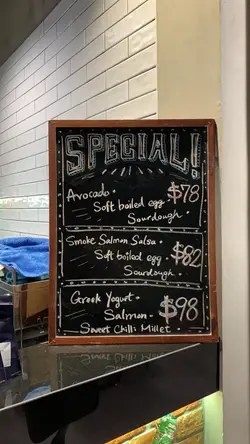 SPECIAL!
Avocado.
Soft boiled egg. $78
Sourdough.
Smoke Salmon Salsa.
Soft boiled egg. $82
Sourdough.
Greek Yogurt.
Salmon. $98
Sweet Chilli Millet.